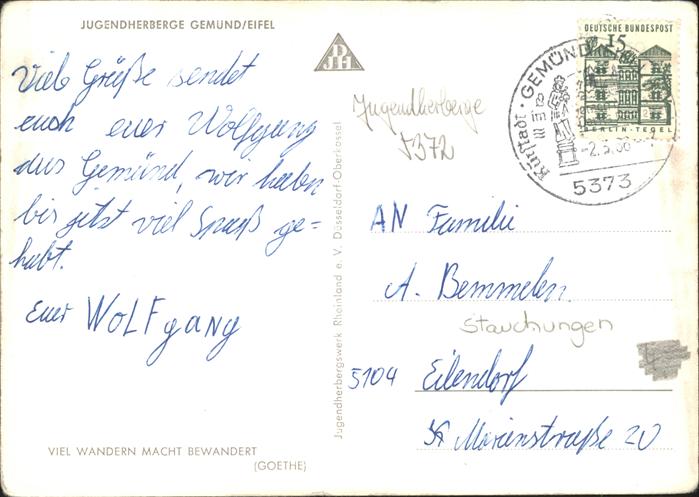 JUGENDHERBERGE GEMÜND/EIFEL
Viele Grüße sendet
euch euer Wolfgang
aus Gemünd, wir haben
bis jetzt viel Spaß ge=
habt.
Euer WOLFgANG
VIEL WANDERN MACHT BEWANDERT
(GOETHE)
DJH
Jugendherbergswerk Rheinland e. V. Düsseldorf-Oberkassel
Jugendherberge
5372
DEUTSCHE BUNDESPOST
15
BERLIN-TEGEL
Kurstadt · GEMÜND
5373
AN Familie
A. Bemmelen
Stauchungen
5104 Eilendorf
Marienstraße 20